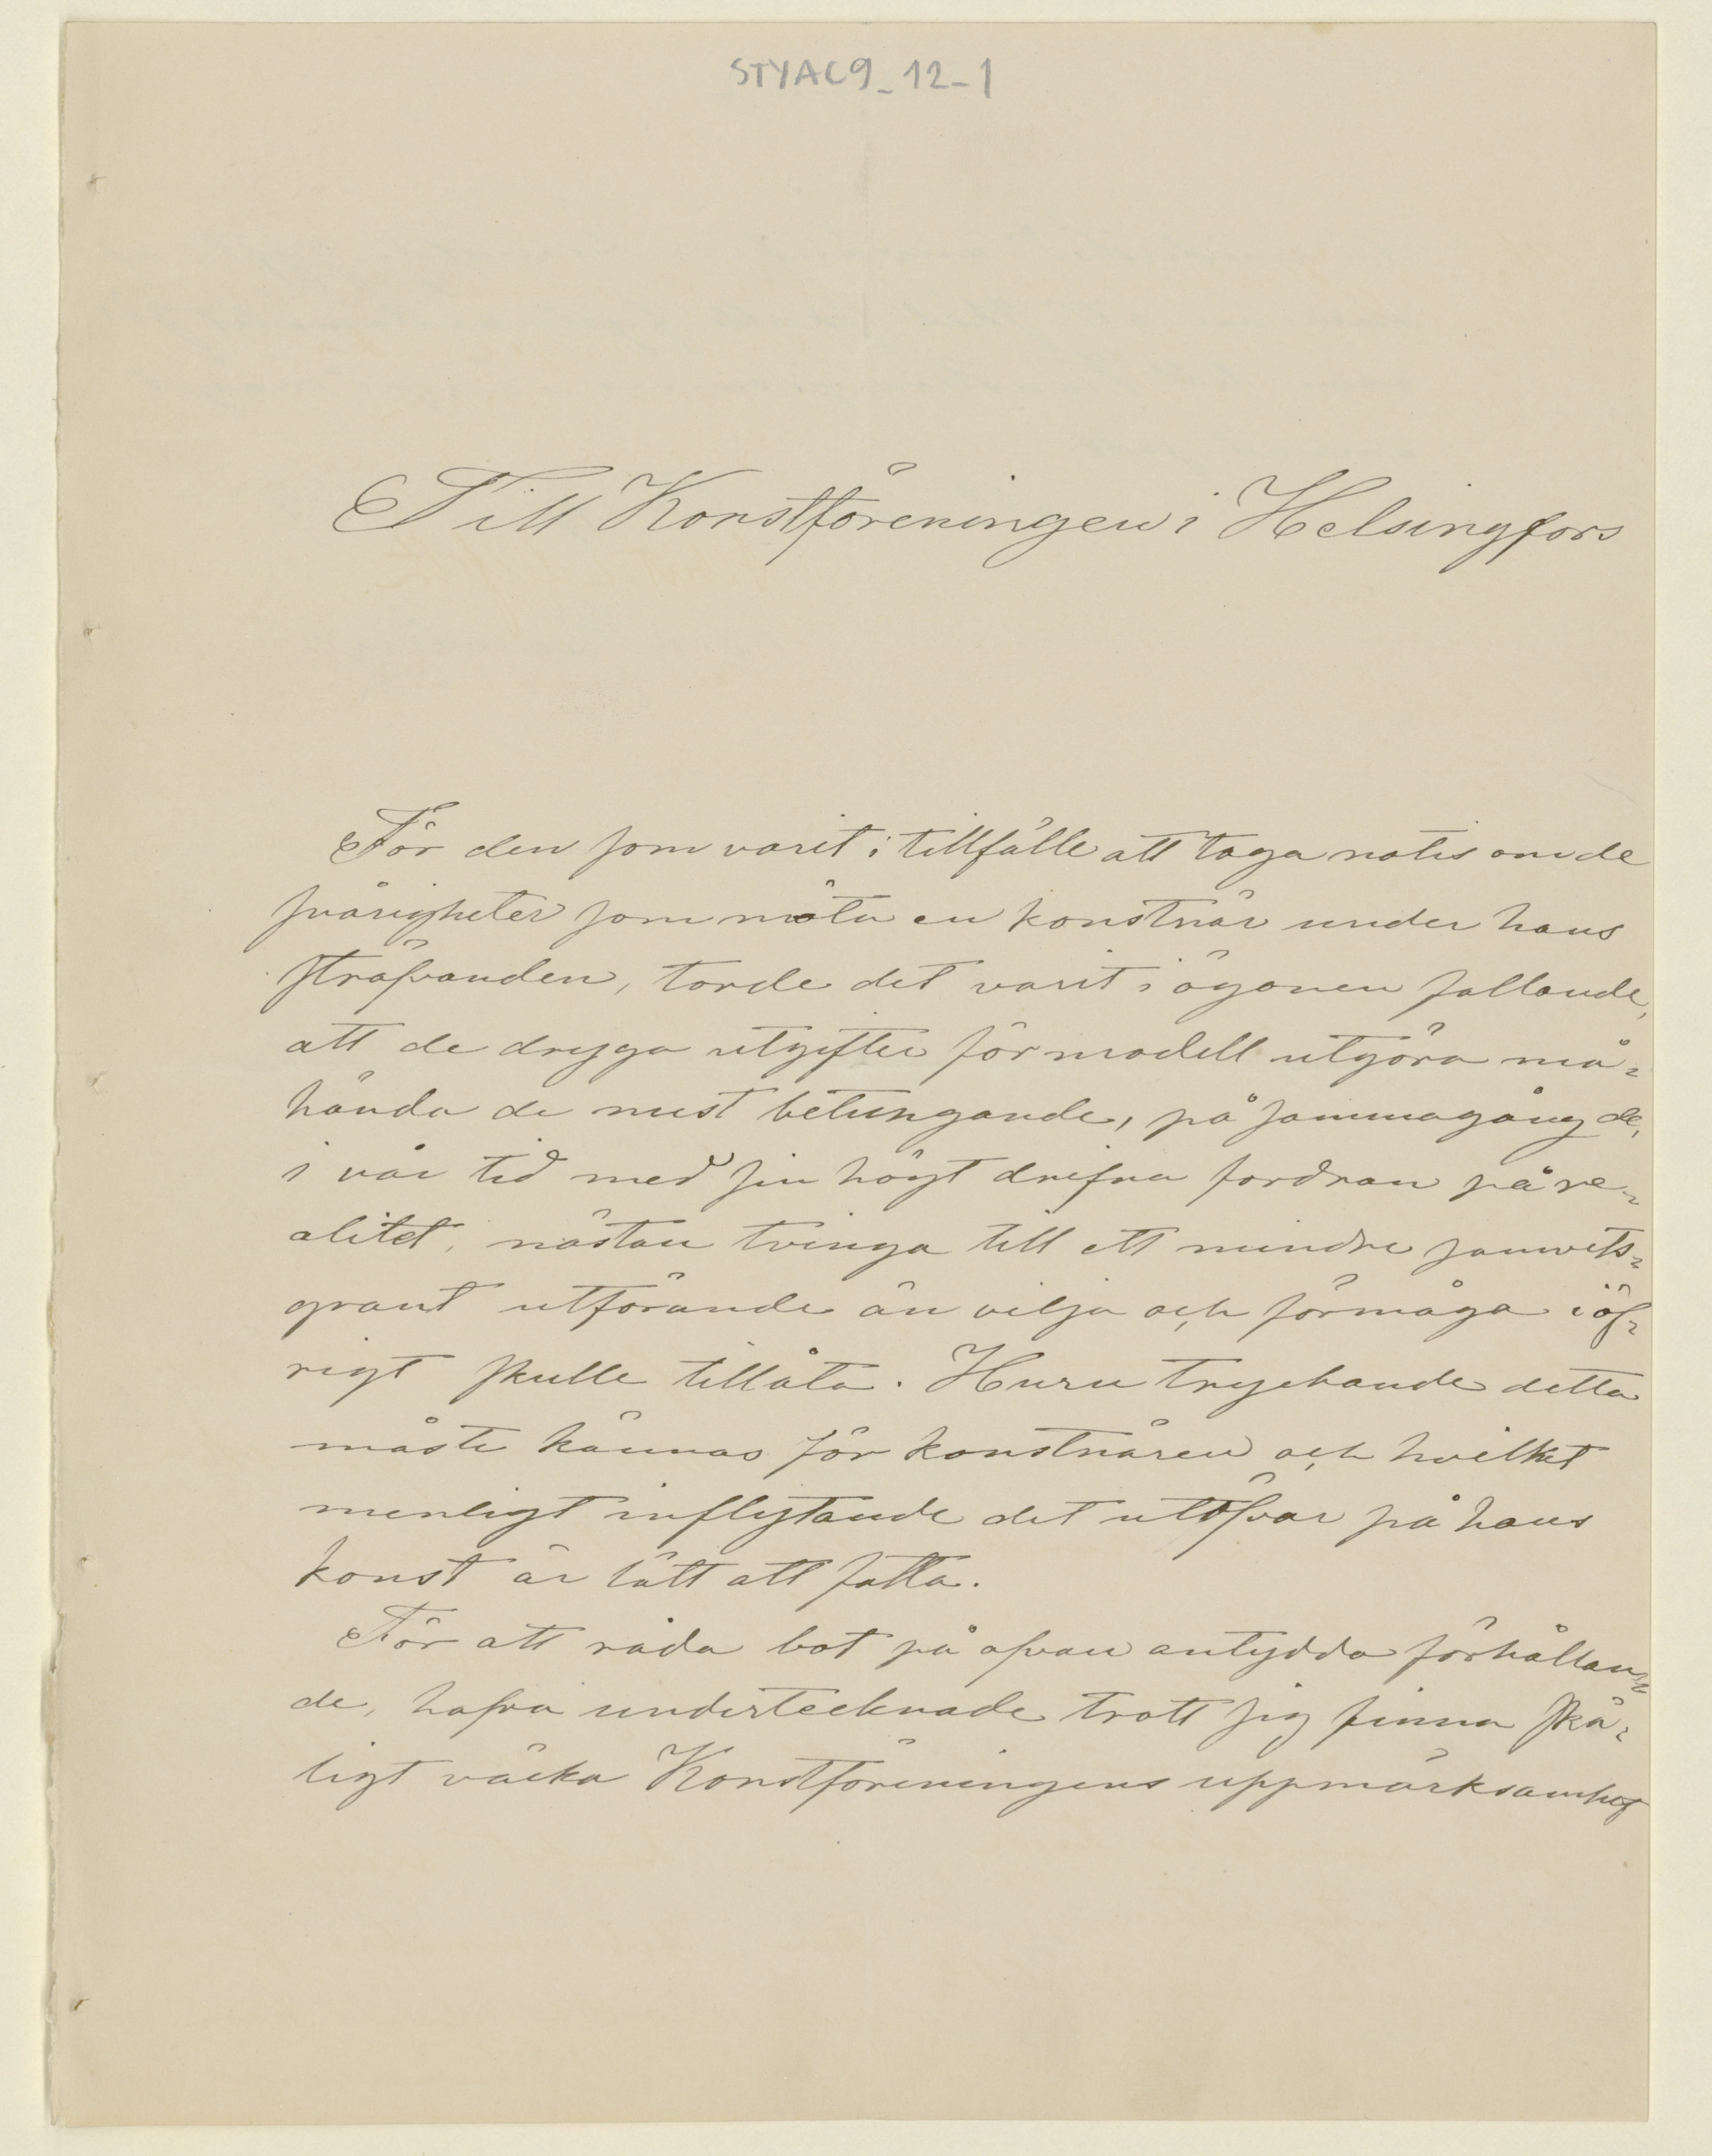 STYAC9_12-1
Till Konstföreningen i Helsingfors
För den som varit i tillfälle att taga notis om de
svårigheter som möta en konstnär under hans
sträfvanden, torde det varit i ögonen fallande,
att de dryga utgifter för modell utgöra må=
hända de mest betungande, på sammagång de,
i vår tid med sin högt drifna fordran på re=
alitet, nästan tvinga till ett mindre samvets=
grant utförande än vilja och förmåga i öf=
rigt skulle tillåta. Huru tryckande detta
måste kännas för konstnären och hvilket
menligt inflytande det utöfvar på hans
konst är lätt att fatta.
För att råda bot på ofvan antydda förhållan=
de, hafva undertecknade trott sig finna skä=
ligt väcka Konstföreningens uppmärksamhet